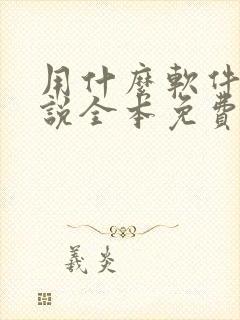 用什麼軟件
說全本免費
義炎